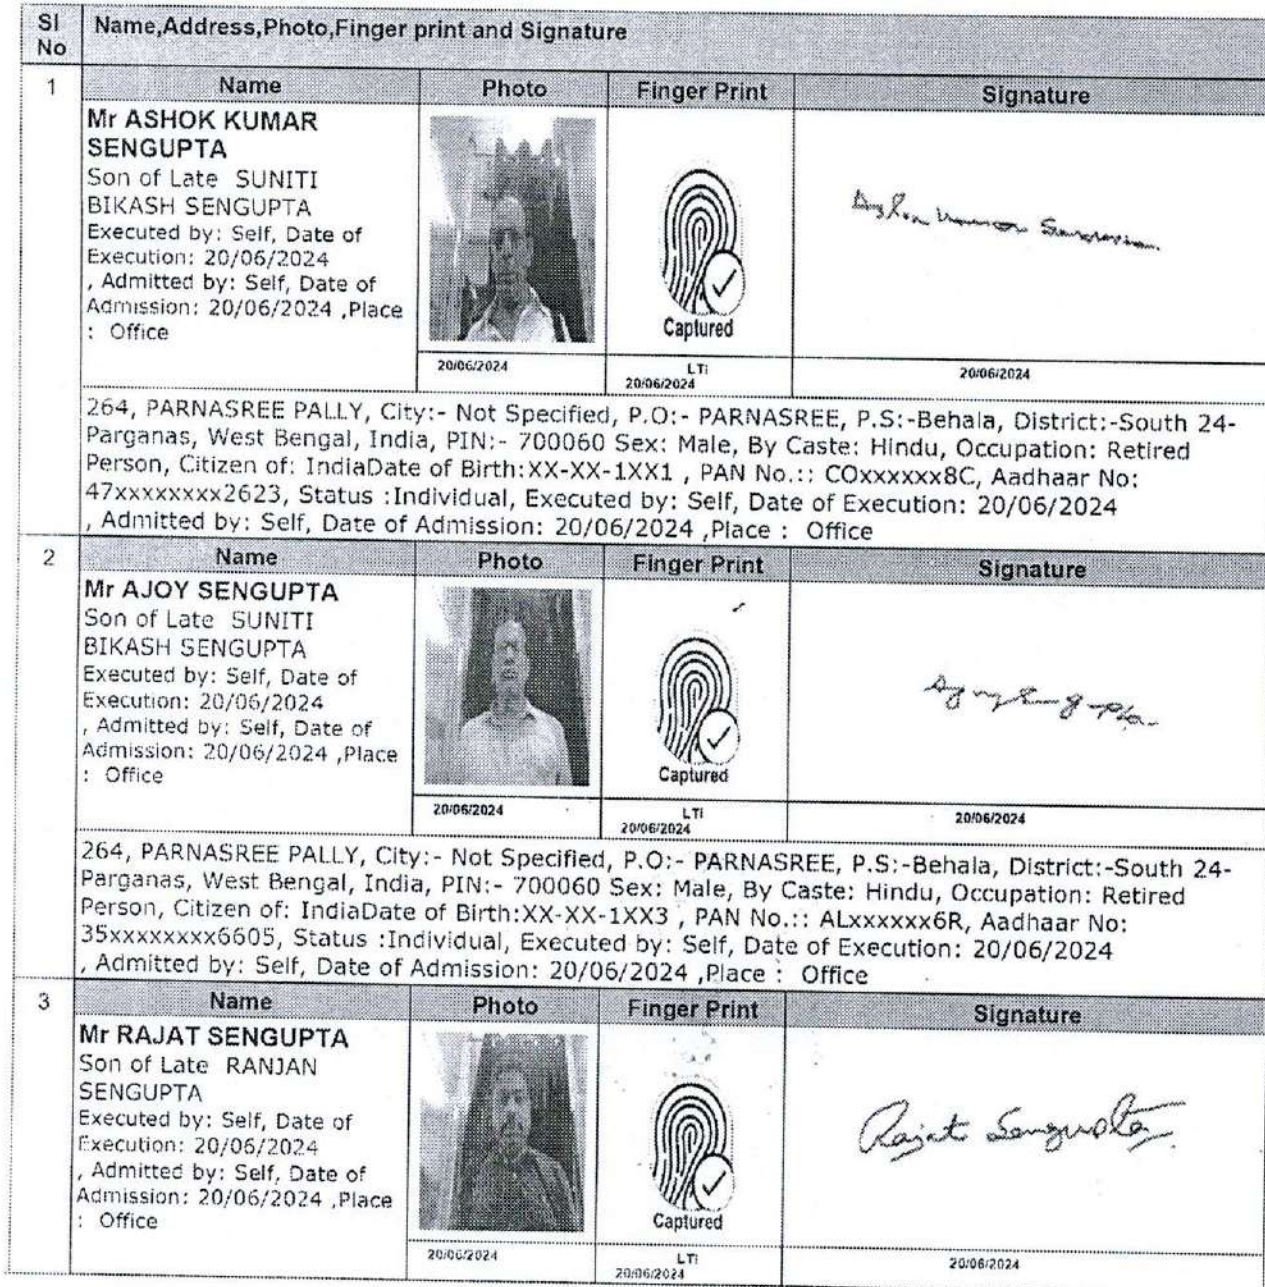 Sl No
Name,Address,Photo,Finger print and Signature
1
Name
Photo
Finger Print
Signature
Mr ASHOK KUMAR
SENGUPTA
Son of Late SUNITI
BIKASH SENGUPTA
Executed by: Self, Date of
Execution: 20/06/2024
, Admitted by: Self, Date of
Admission: 20/06/2024 ,Place
: Office
Captured
Ashok Kumar Sengupta
20/06/2024
LTI
20/06/2024
20/06/2024
264, PARNASREE PALLY, City:- Not Specified, P.O:- PARNASREE, P.S:-Behala, District:-South 24-
Parganas, West Bengal, India, PIN:- 700060 Sex: Male, By Caste: Hindu, Occupation: Retired
Person, Citizen of: IndiaDate of Birth:XX-XX-1XX1 , PAN No.:: COxxxxxx8C, Aadhaar No:
47xxxxxxxx2623, Status :Individual, Executed by: Self, Date of Execution: 20/06/2024
, Admitted by: Self, Date of Admission: 20/06/2024 ,Place : Office
2
Name
Photo
Finger Print
Signature
Mr AJOY SENGUPTA
Son of Late SUNITI
BIKASH SENGUPTA
Executed by: Self, Date of
Execution: 20/06/2024
, Admitted by: Self, Date of
Admission: 20/06/2024 ,Place
: Office
Captured
Ajoy Sengupta
20/06/2024
LTI
20/06/2024
20/06/2024
264, PARNASREE PALLY, City:- Not Specified, P.O:- PARNASREE, P.S:-Behala, District:-South 24-
Parganas, West Bengal, India, PIN:- 700060 Sex: Male, By Caste: Hindu, Occupation: Retired
Person, Citizen of: IndiaDate of Birth:XX-XX-1XX3 , PAN No.:: ALxxxxxx6R, Aadhaar No:
35xxxxxxxx6605, Status :Individual, Executed by: Self, Date of Execution: 20/06/2024
, Admitted by: Self, Date of Admission: 20/06/2024 ,Place : Office
3
Name
Photo
Finger Print
Signature
Mr RAJAT SENGUPTA
Son of Late RANJAN
SENGUPTA
Executed by: Self, Date of
Execution: 20/06/2024
, Admitted by: Self, Date of
Admission: 20/06/2024 ,Place
: Office
Captured
Rajat Sengupta
20/06/2024
LTI
20/06/2024
20/06/2024